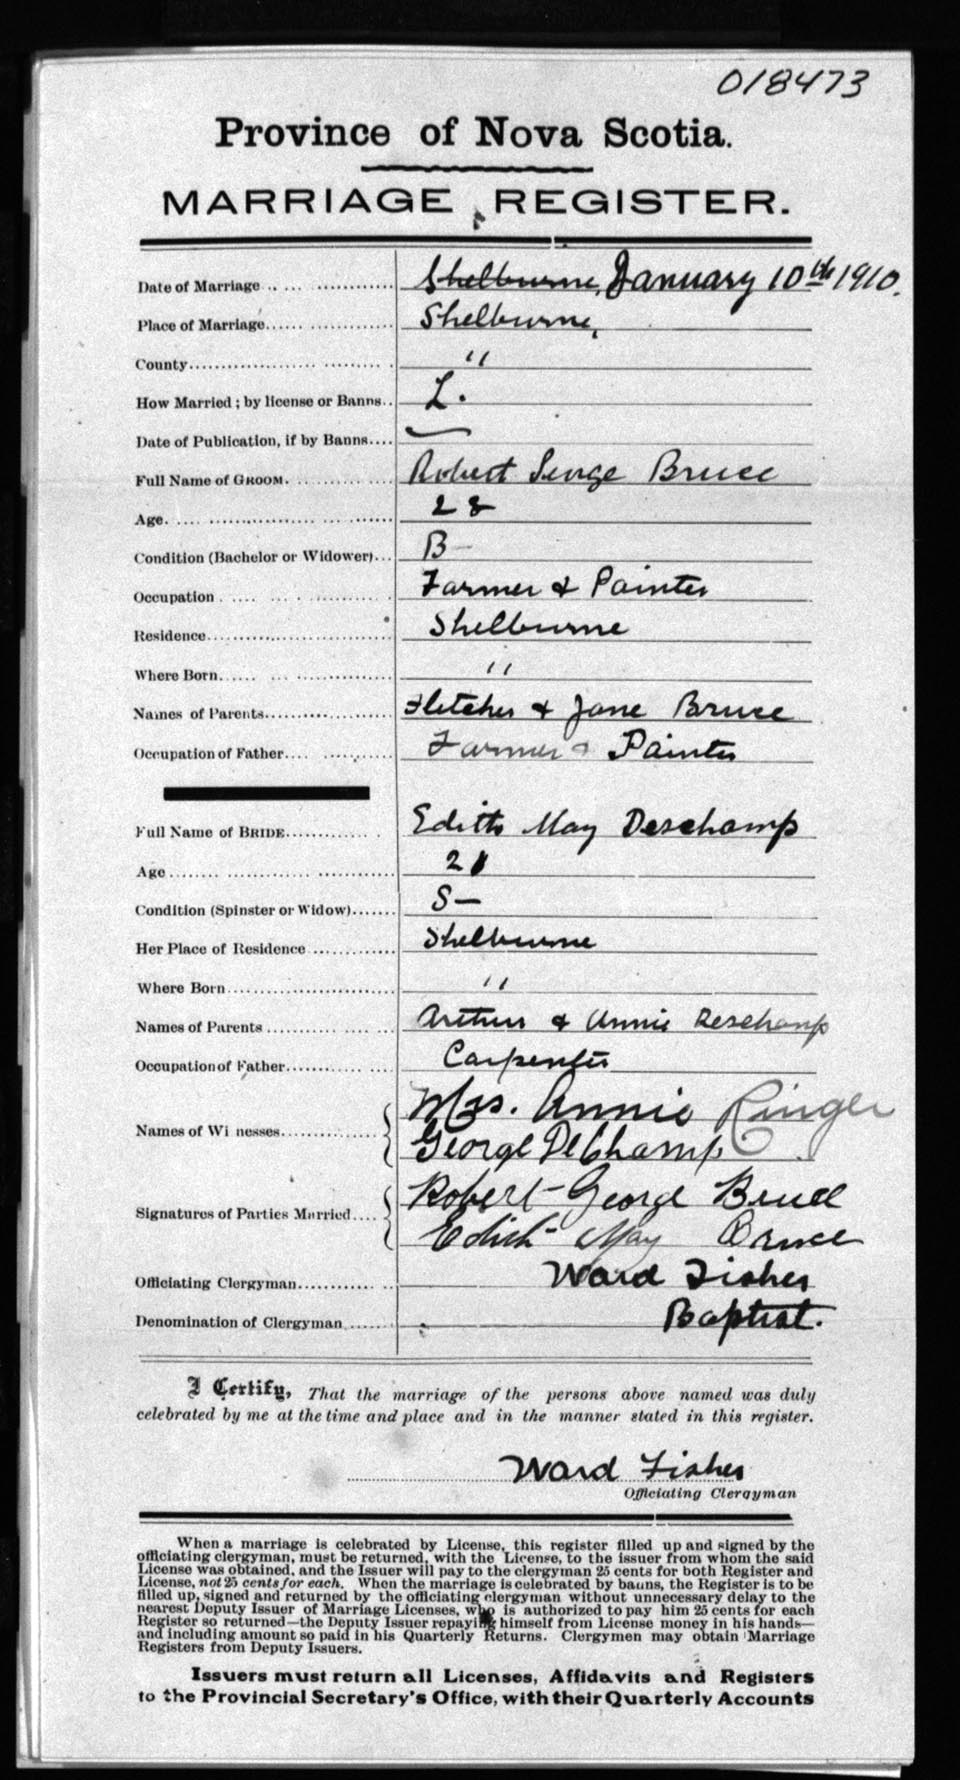 018473
Province of Nova Scotia.
MARRIAGE REGISTER.
Date of Marriage Shelburne, January 10th 1910.
Place of Marriage Shelburne,
County "
How Married; by license or Banns L.
Date of Publication, if by Banns —
Full Name of GROOM. Robert George Bruce
Age. 28
Condition (Bachelor or Widower) B—
Occupation Farmer & Painter
Residence Shelburne
Where Born "
Names of Parents Fletcher & Jane Bruce
Occupation of Father Farmer & Painter
Full Name of BRIDE Edith May Deschamp
Age 21
Condition (Spinster or Widow) S—
Her Place of Residence Shelburne
Where Born "
Names of Parents Arthur & Annie Deschamp
Occupation of Father Carpenter
Names of Wi nesses Mrs. Annie Ringer
George DeChamp
Signatures of Parties Married Robert George Bruce
Edith May Bruce
Officiating Clergyman Ward Fisher
Denomination of Clergyman Baptist.
I Certify, That the marriage of the persons above named was duly
celebrated by me at the time and place and in the manner stated in this register.
Ward Fisher
Officiating Clergyman
When a marriage is celebrated by License, this register filled up and signed by the
officiating clergyman, must be returned, with the License, to the issuer from whom the said
License was obtained, and the Issuer will pay to the clergyman 25 cents for both Register and
License, not 25 cents for each. When the marriage is celebrated by banns, the Register is to be
filled up, signed and returned by the officiating clergyman without unnecessary delay to the
nearest Deputy Issuer of Marriage Licenses, who is authorized to pay him 25 cents for each
Register so returned—the Deputy Issuer repaying himself from License money in his hands—
and including amount so paid in his Quarterly Returns. Clergymen may obtain Marriage
Registers from Deputy Issuers.
Issuers must return all Licenses, Affidavits and Registers
to the Provincial Secretary's Office, with their Quarterly Accounts